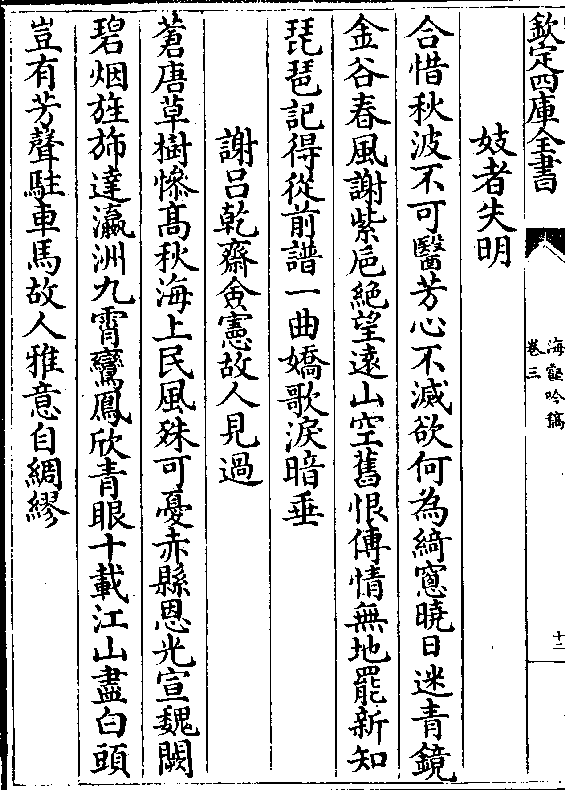 欽定四庫全書
海壑吟稿
卷三
十二
妓者失明
合惜秋波不可醫芳心不滅欲何為綺窓曉日迷青鏡
金谷春風謝紫巵絶望逺山空舊恨傳情無地罷新知
琵琶記得從前譜一曲嬌歌淚暗垂
謝呂乾齋僉憲故人見過
蒼唐草樹慘髙秋海上民風殊可憂赤縣恩光宣魏闕
碧烟旌斾達瀛洲九霄鸞鳳欣青眼十載江山盡白頭
豈有芳聲駐車馬故人雅意自綢繆